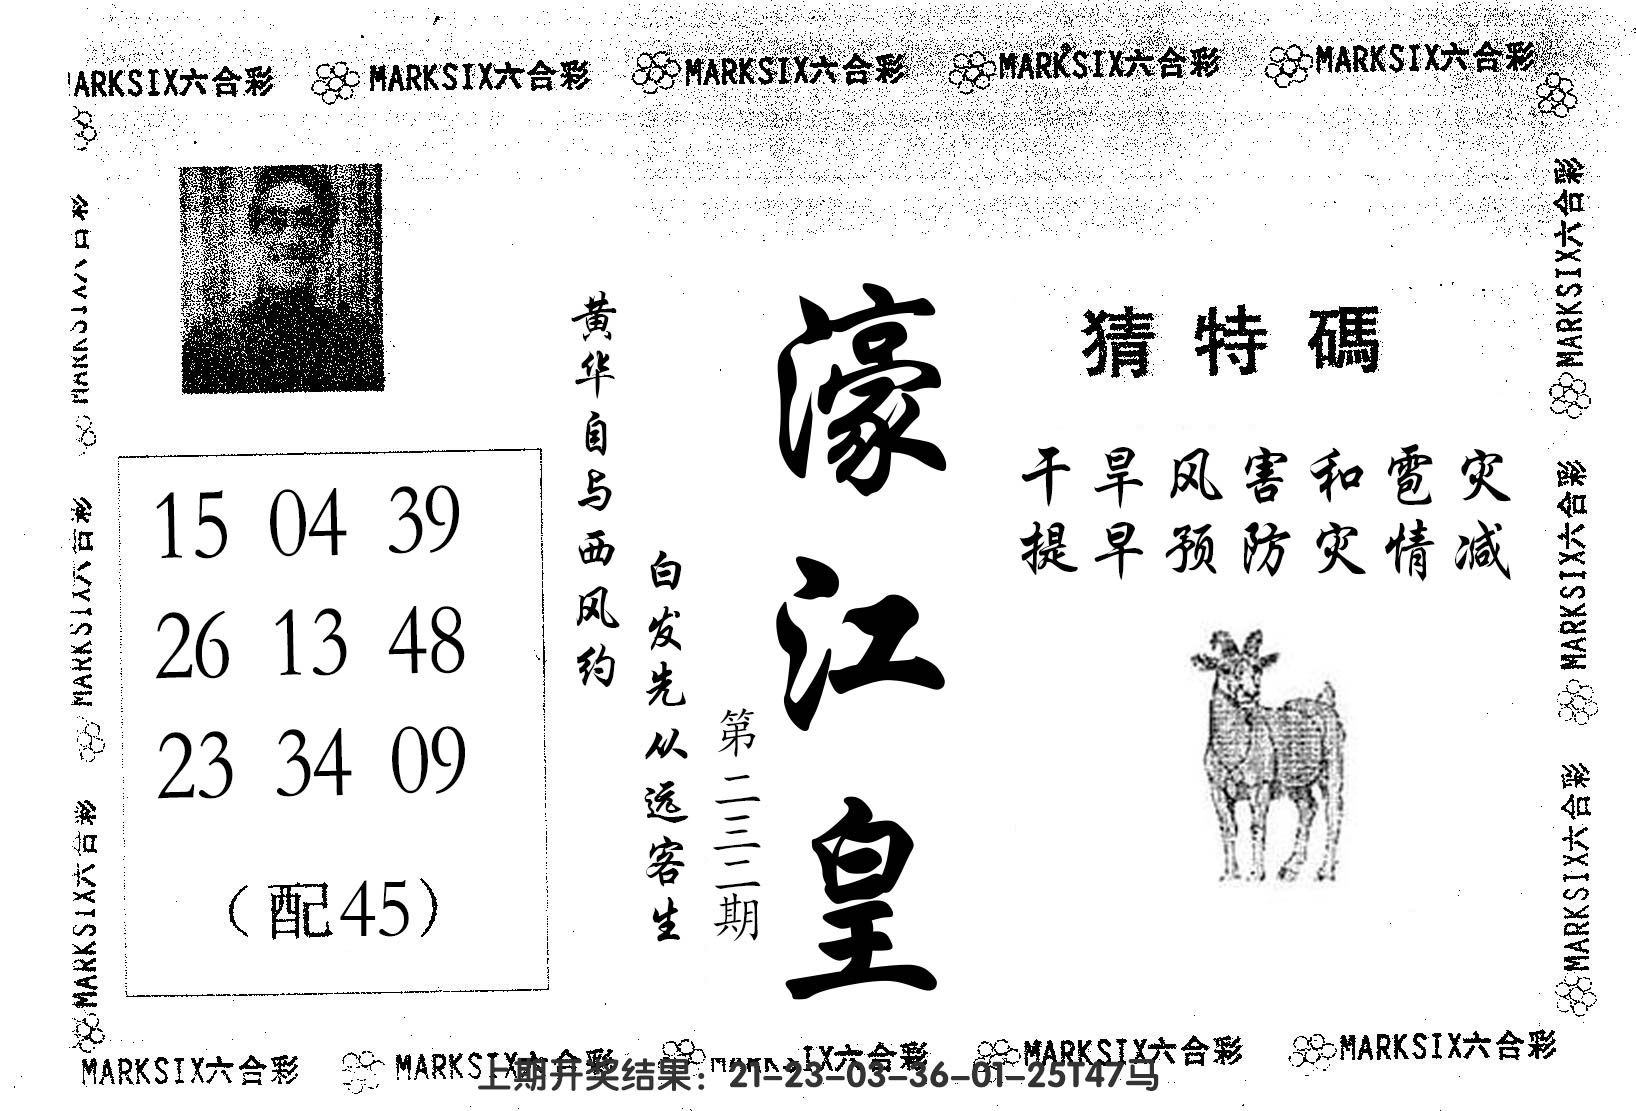 MARKSIX六合彩 MARKSIX六合彩 MARKSIX六合彩 MARKSIX六合彩 MARKSIX六合彩
猜特碼
干旱风害和雹灾
提早预防灾情减
濠江皇
第二三二期
白发先从远客生
黄华自与西风约
15 04 39
26 13 48
23 34 09
（配45）
MARKSIX六合彩
MARKSIX六合彩
MARKSIX六合彩
MARKSIX六合彩
MARKSIX六合彩
MARKSIX六合彩
MARKSIX六合彩 MARKSIX六合彩 MARKSIX六合彩 MARKSIX六合彩
上期开奖结果：21-23-03-36-01-25T47马